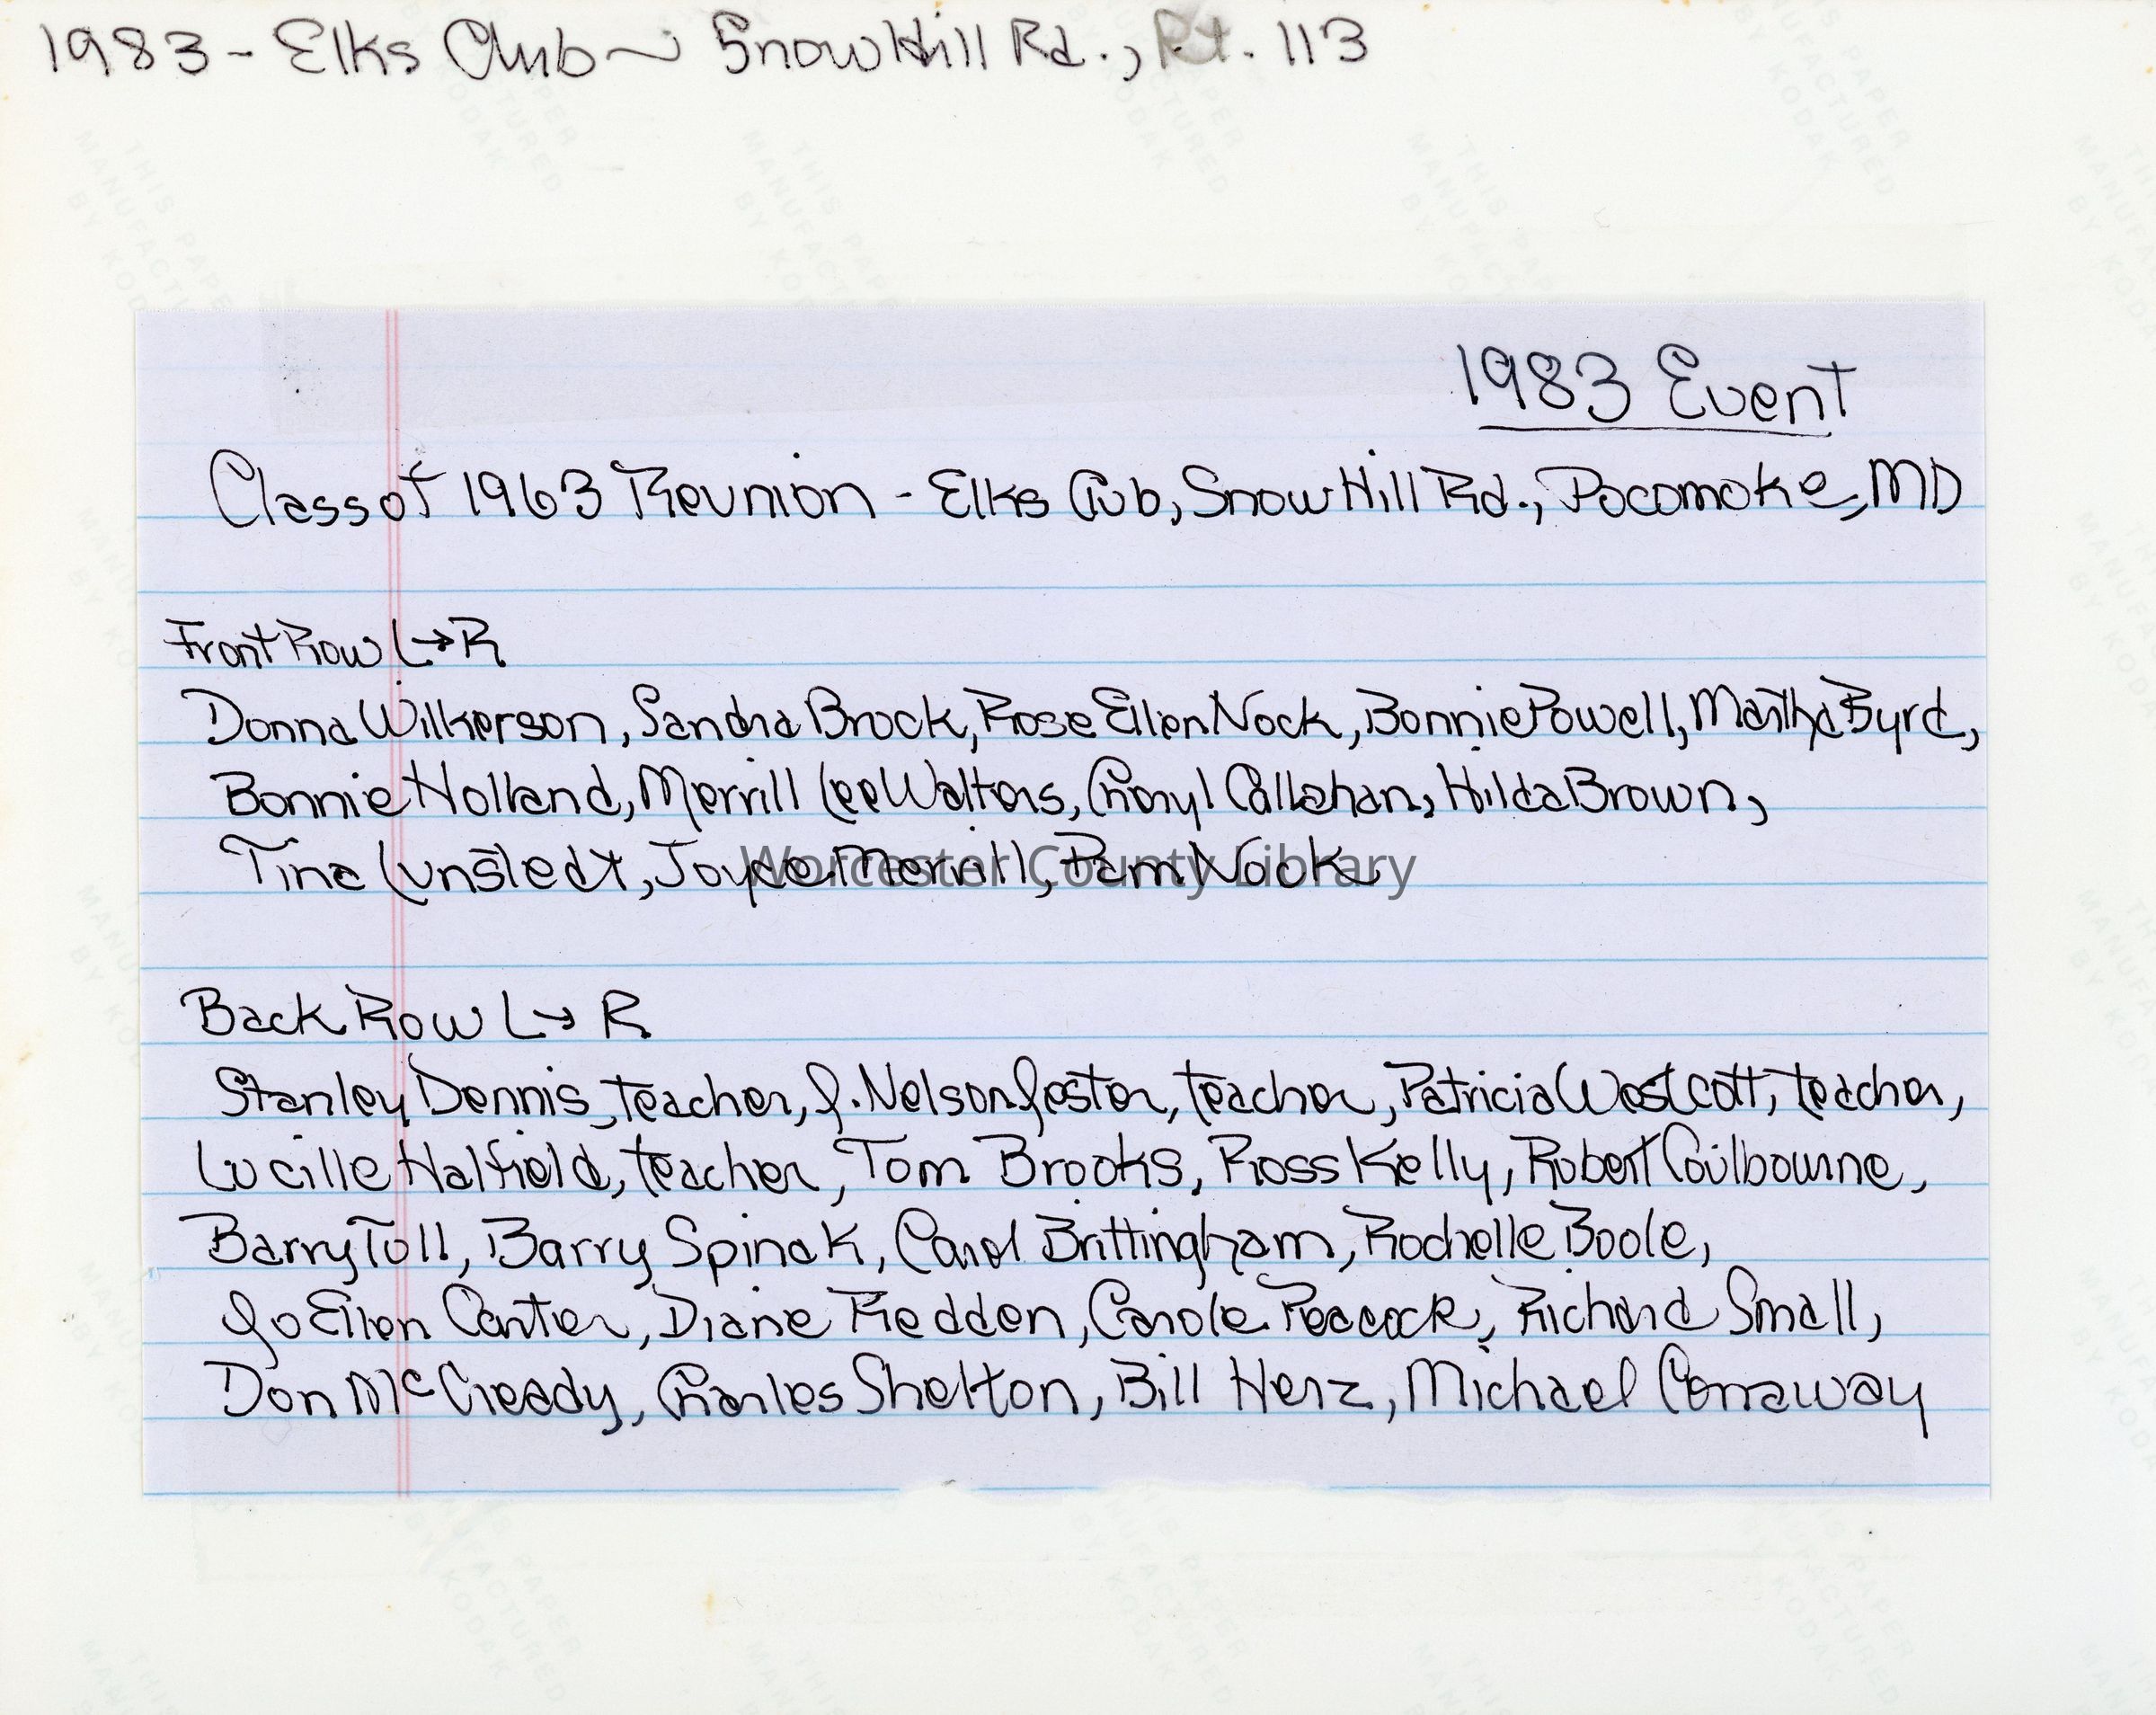 1983 - Elks Club ~ Snow Hill Rd., Rt. 113
1983 Event
Class of 1963 Reunion - Elks Club, Snow Hill Rd., Pocomoke, MD
Front Row L→R
Donna Wilkerson, Sandra Brock, Rose Ellen Nock, Bonnie Powell, Martha Byrd,
Bonnie Holland, Merrill Lee Walters, Cheryl Callahan, Hilda Brown,
Tina Lunsledt, Joyce Merrill, Pam Nock
Worcester County Library
Back Row L→R
Stanley Dennis, teacher, J. Nelson Jester, teacher, Patricia Westcott, teacher,
Lucille Halfield, teacher, Tom Brooks, Ross Kelly, Robert Coulbourne,
Barry Tull, Barry Spinak, Carol Brittingham, Rochelle Boole,
Jo Ellen Carter, Diane Redden, Carole Peacock, Richard Small,
Don McCready, Charles Shelton, Bill Herz, Michael Conaway
THIS PAPER
MANUFACTURED
BY KODAK